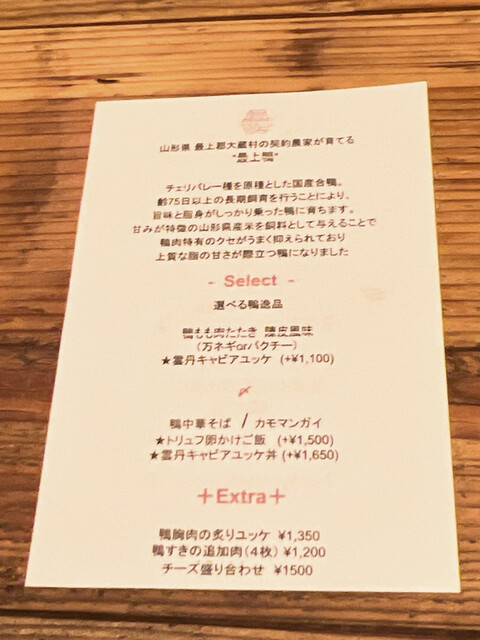 山形県 最上郡大蔵村の契約農家が育てる
"最上鴨"
チェリバレー種を原種とした国産合鴨。
齢75日以上の長期飼育を行うことにより、
旨味と脂身がしっかり乗った鴨に育ちます。
甘みが特徴の山形県産米を飼料として与えることで
鴨肉特有のクセがうまく抑えられており
上質な脂の甘さが際立つ鴨になりました
- Select -
選べる鴨逸品
鴨もも肉たたき 陳皮風味
(万ネギorパクチー)
★雲丹キャビアユッケ (+¥1,100)
〆
鴨中華そば / カモマンガイ
★トリュフ卵かけご飯 (+¥1,500)
★雲丹キャビアユッケ丼 (+¥1,650)
＋Extra＋
鴨胸肉の炙りユッケ ¥1,350
鴨すきの追加肉(4枚) ¥1,200
チーズ盛り合わせ ¥1500